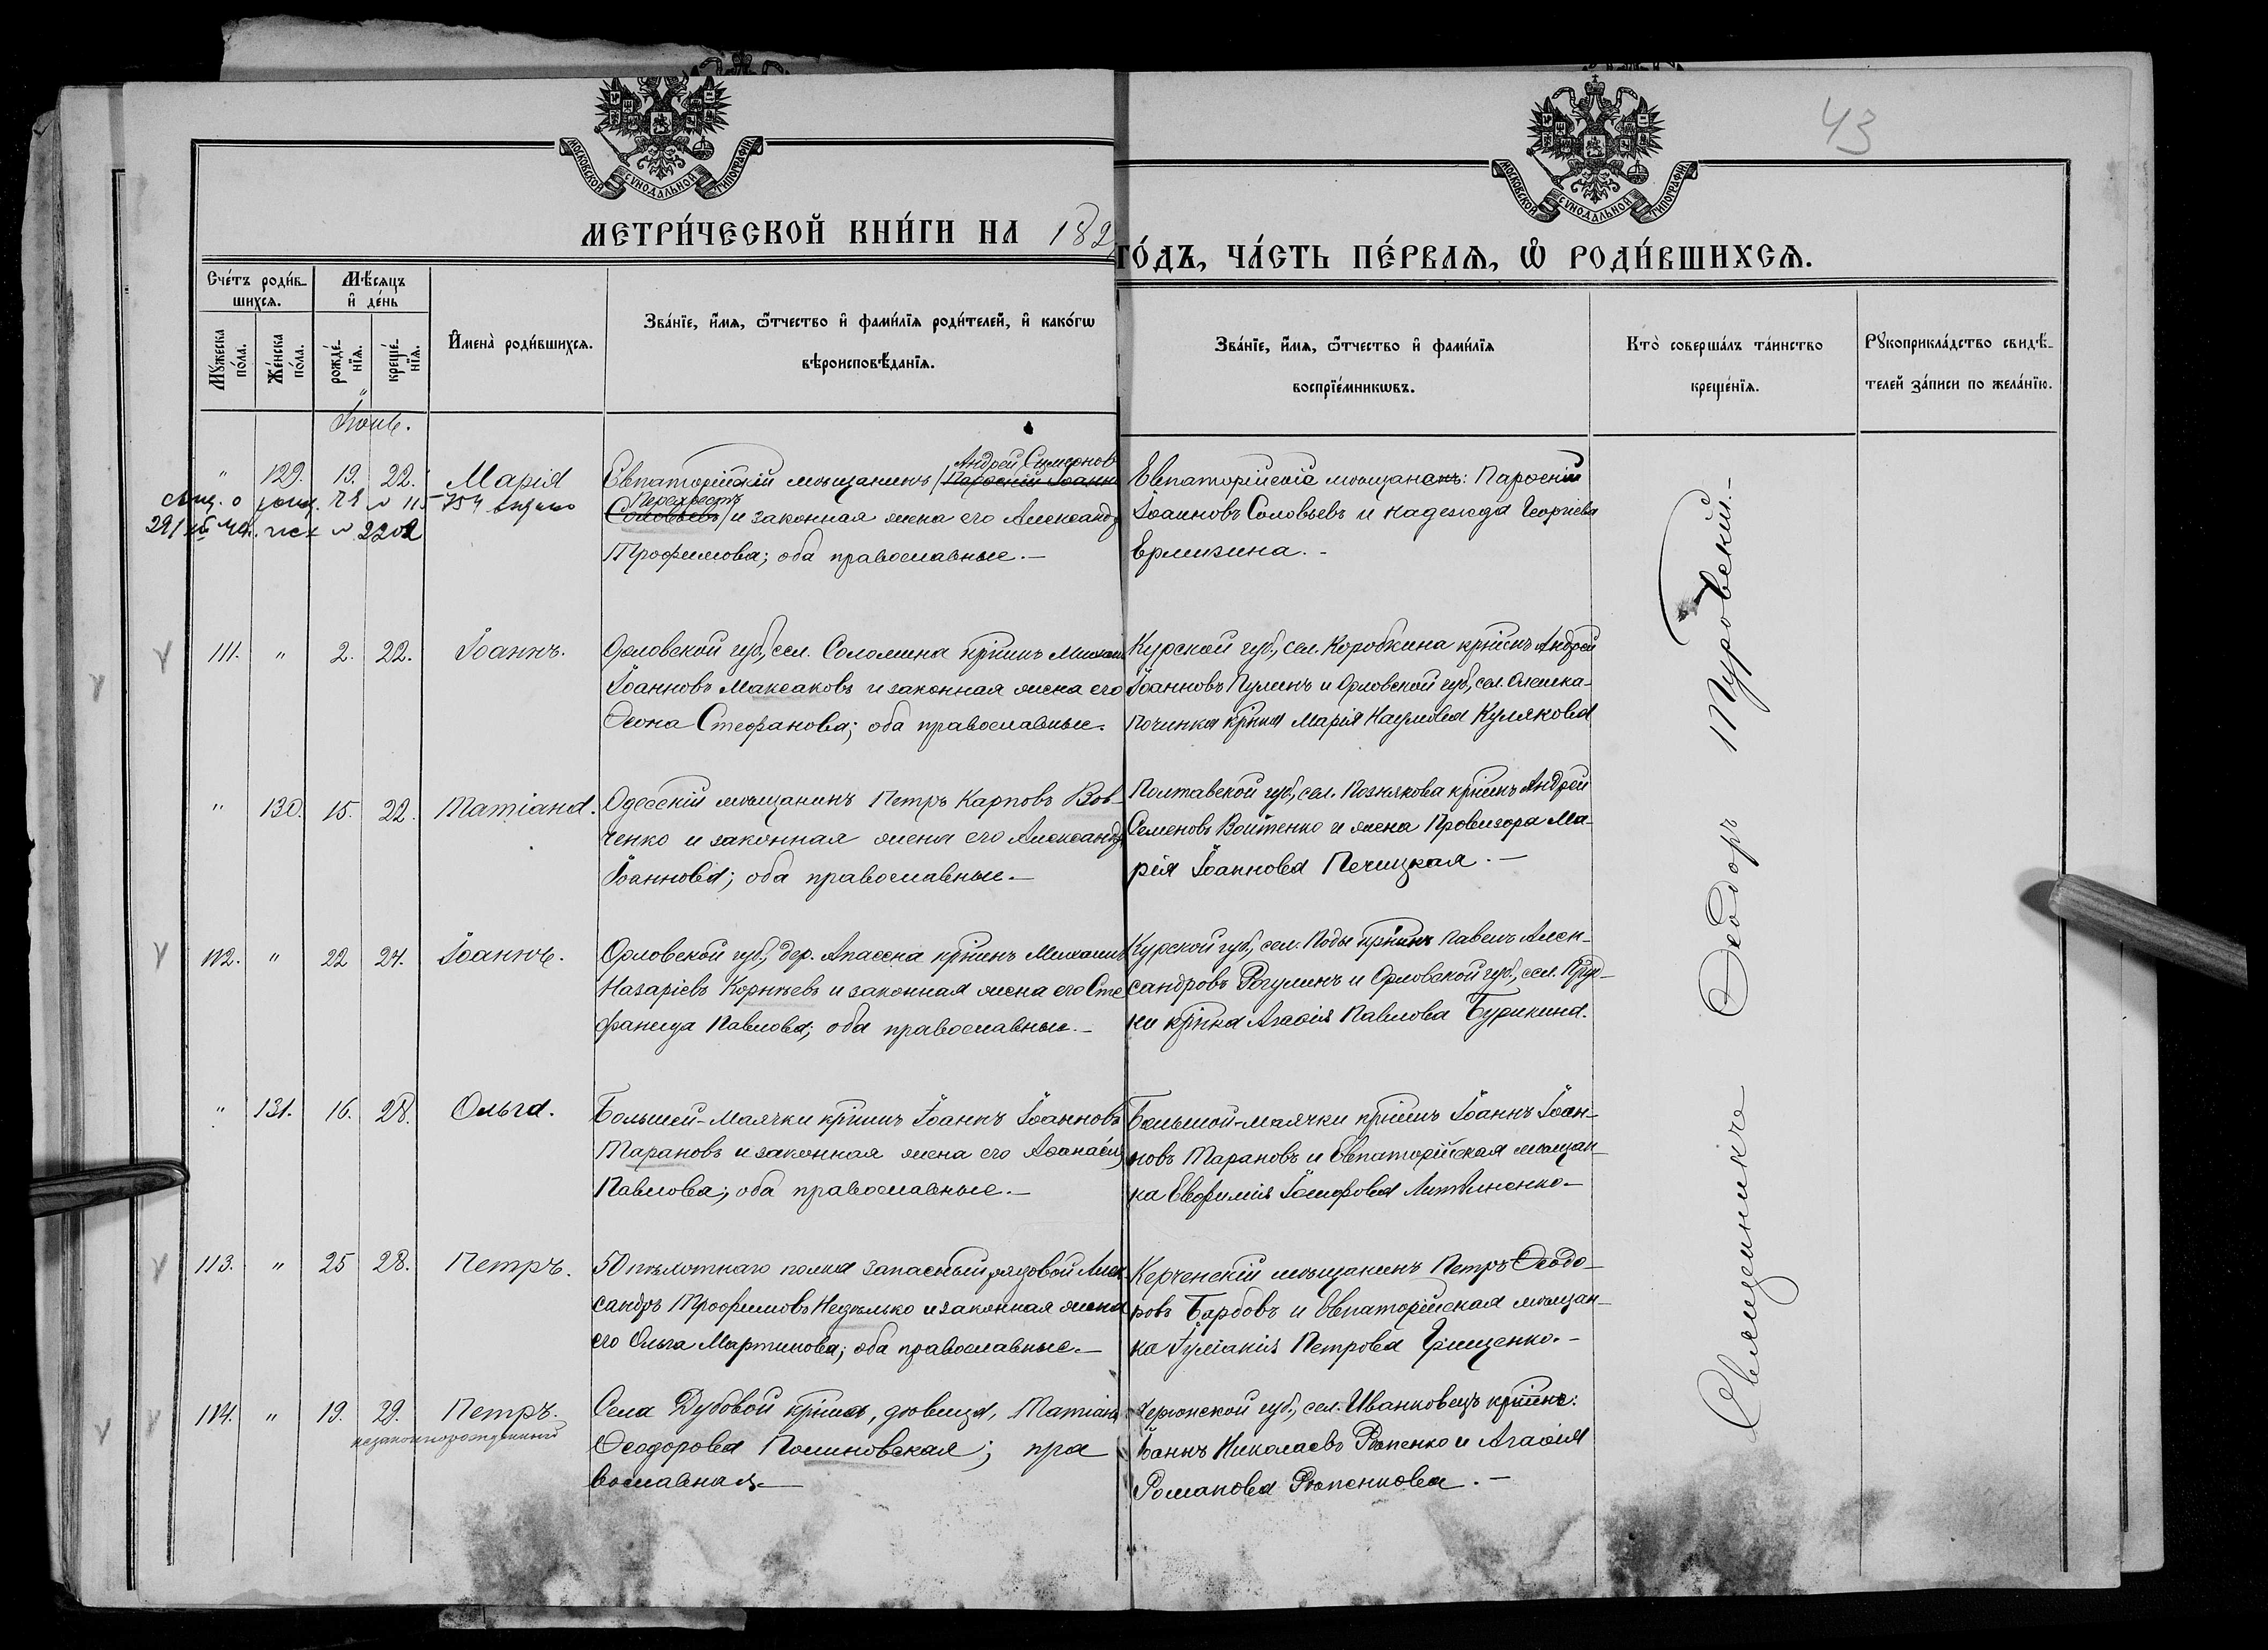 43
МОСКОВСКОЙ СѴНОДАЛЬНОЙ ТИПОГРАФІИ
МОСКОВСКОЙ СѴНОДАЛЬНОЙ ТИПОГРАФІИ
МЕТРИ́ЧЕСКОЙ КНИ́ГИ НА 18
ГО́ДЪ, ЧА́СТЬ ПЕ́РВАѦ, Ѡ РОДИ́ВШИХСѦ.
Сче́тъ роди́в-
шихсѧ.
Мѣ́сѧцъ
и҆ де́нь
Мꙋжеска
по́ла.
Же́нска
по́ла.
рожде́-
нїѧ.
креще́-
нїѧ.
И҆мена̀ роди́вшихсѧ.
Зва́нїе, и҆́мѧ, ѻ҆́тчество и҆ фами́лїѧ роди́телей, и҆ како́гѡ
вѣроисповѣ́данїѧ.
Зва́нїе, и҆́мѧ, ѻ҆́тчество и҆ фами́лїѧ
воспрїе́мникѡвъ.
Кто̀ соверша́лъ та́инство
креще́нїѧ.
Рꙋкоприкла́дство свидѣ́-
телей за́писи по жела́нїю.
" 129. 19. 22. Марія
Андрей Симеонов
Евпаторійскій мѣщанинъ Парѳеній Іоанн
Перехрестъ
Соловьевъ и законная жена его Александр
Трофимова; оба православные.—
Евпаторійскіе мѣщане: Парѳеній
Іоанновъ Соловьевъ и Надежда Георгіева
111. " 2. 22. Іоаннъ.
Орловской губ., сел. Соломина крⷭ҇інъ Михаил
Іоанновъ Максаковъ и законная жена его
Ѳеона Стефанова; оба православные.
Курской губ., сел. Коробкина крⷭ҇інъ Андрей
Іоанновъ Пулинъ и Орловской губ., сел.
Починка Марія Наумова Кулякова
" 130. 15. 22. Татіана.
Одесскій мѣщанинъ Петръ Карповъ Вов-
ченко и законная жена его Александр
Іоаннова; оба православные.—
Полтавской губ., сел. Познякова крⷭ҇інъ Андрей
Семеновъ Войтенко и жена Провизора Ма-
рія Іоаннова Печицкая.—
112. " 22 24. Іоаннъ.
Орловской губ., дер. крⷭ҇інъ Михаилъ
Назаріевъ Корнѣевъ и законная жена его Сте
фанида Павлова; оба православные.—
Курской губ., сел. Поды крⷭ҇інъ Павелъ Алек-
сандровъ Рогулинъ и Орловской губ., сел. Пруд-
ки Агаѳія Павлова Бурикина.
" 131. 16. 28. Ольга.
Большой-Маячки крⷭ҇інъ Іоаннъ Іоанновъ
Тарановъ и законная жена его Аѳанасія
Павлова; оба православные.—
Большой-Маячки крⷭ҇інъ Іоаннъ Іоан-
новъ Тарановъ и Евпаторійская мѣщан-
ка Евфимія Іосифова Литвиненко.—
113. " 25 28. Петръ.
50 пѣхотнаго полка запасный рядовой Алек
сандръ Трофимовъ Недѣлько и законная жена
его Ольга Мартинова; оба православные.—
Керченскій мѣщанинъ Петръ Ѳеодо-
ровъ Барбовъ и Евпаторійская мѣщан-
ка Іуліанія Петрова Грищенко.—
114. " 19. 29. Петръ.
незаконнорожденный
Села Дубовой, дѣвица, Татіана
Ѳеодорова Полиновская; пра
вославная.—
Херсонской губ., сел. Иванковецъ
Іоаннъ Николаевъ Рѣпенко и Агаѳія
Романова Рѣпенкова.—
Священникъ Ѳеодоръ Туровскій.—